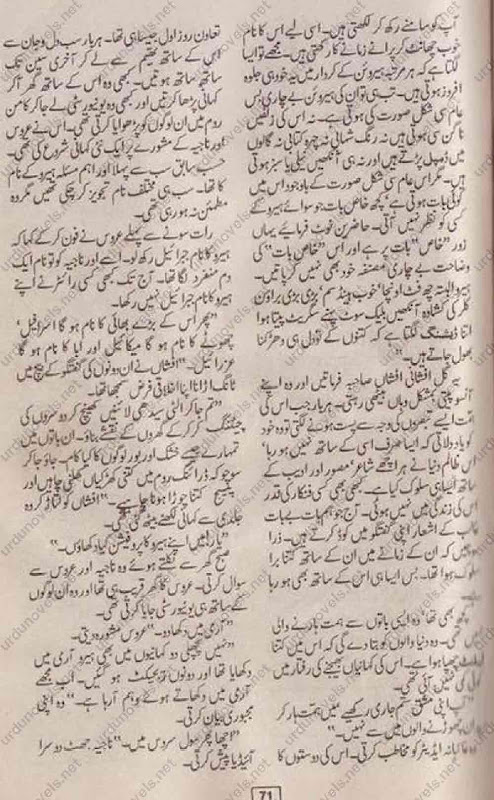 آپ کو سامنے رکھ کر لکھتی ہیں۔ اسی لیے اس کا نام
خوب چھانٹ کر پرانے زمانے کا رکھتی ہیں۔ مجھے تو ایسا
لگتا ہے کہ ہر مرتبہ ہیروئن کے کردار میں یہ خود ہی جلوہ
افروز ہوتی ہیں۔ تب ہی تو ان کی ہیروئن بے چاری بس
عام سی شکل صورت کی ہوتی ہے۔ نہ اس کی زلفیں
ناگن سی ہوتی ہیں نہ رنگ شہابی نہ چہرہ کتابی نہ گالوں
میں ڈمپل پڑتے ہیں اور نہ ہی آنکھیں نیلی یا سبز ہوتی
ہیں۔ مگر اس عام سی شکل صورت کے باوجود اس میں
کوئی بات ہوتی ہے، کچھ خاص بات جو سوائے ہیرو کے
کسی کو نظر نہیں آتی۔ حاضرین نوٹ فرمائیے یہاں
زور "خاص" بات پر ہے اور اس "خاص بات" کی
وضاحت بے چاری مصنفہ خود بھی نہیں کر پاتیں۔
ہیرو البتہ چھ فٹ اونچا، خوب ہینڈسم، بڑی بڑی براؤن
کلر کی کشادہ آنکھیں بلیک سوٹ پہنے سگریٹ پیتا ہوا
اتنا ڈیشنگ لگتا ہے کہ کتنوں کے تو دل ہی دھڑکنا
بھول جاتے ہیں۔"
یہ گل افشانی افشاں صاحبہ فرماتیں اور وہ اپنے
آنسو پیتی بمشکل وہاں بیٹھی رہتی۔ ہر بار جب اس کی
ہمت ایسے تبصروں کی وجہ سے پست ہونے لگتی تو وہ خود
کو یاد دلاتی کہ ایسا صرف اسی کے ساتھ نہیں ہو رہا،
اس ظالم دنیا نے ہر اچھے شاعر، مصور اور ادیب کے
ساتھ ایسا ہی سلوک کیا ہے۔ کبھی بھی کسی فنکار کی قدر
اس کی زندگی میں نہیں ہوتی۔ آج جو ہم بات بے بات
غالب کے اشعار اپنی گفتگو میں کوڈ کرتے ہیں۔ ذرا
پوچھیں کہ ان کے زمانے میں ان کے ساتھ کتنا برا
سلوک ہوا تھا۔ بس ایسا ہی اس کے ساتھ بھی ہو رہا
کچھ بھی تھا، وہ ایسی باتوں سے ہمت ہارنے والی
نہیں تھی۔ وہ دنیا والوں کو بتا دے گی کہ اس میں کتنا
ٹیلنٹ چھپا ہوا ہے۔ اس کی کہانیاں بھیجنے کی رفتار میں
کوئی کمی نہیں آئی تھی۔
"آپ اپنی مشق ستم جاری رکھیے میں ہمت ہار کر
میدان چھوڑنے والوں میں سے نہیں۔"
وہ غائبانہ ایڈیٹر کو مخاطب کرتی۔ اس کی دوستوں کا
تعاون روز اول جیسا ہی تھا۔ ہر بار سب دل و جان سے
اس کے ساتھ تھیم سے لے کر آخری سین تک
ساتھ ساتھ ہوتیں۔ کبھی وہ اس کے ساتھ گھر آ کر
کہانی پڑھا کرتیں اور کبھی وہ یونیورسٹی لے جا کر کامن
روم میں ان لوگوں کو پڑھوایا کرتی تھی۔ اس نے عروس
اور ناجیہ کے مشورے پر ایک نئی کہانی شروع کی تھی۔
حسب سابق سب سے پہلا اور اہم مسئلہ ہیرو کے نام
کا تھا۔ سب ہی مختلف نام تجویز کر چکی تھیں مگر وہ
مطمئن نہ ہو رہی تھی۔
رات سونے سے پہلے عروس نے فون کر کے کہا کہ
ہیرو کا نام جبرائیل رکھ لو۔ اسے اور ناجیہ کو تو نام ایک
دم منفرد لگا تھا۔ آج تک کبھی کسی رائٹر نے اپنے
ہیرو کا نام جبرائیل نہیں رکھا۔
"پھر اس کے بڑے بھائی کا نام ہو گا اسرافیل،
چھوٹے کا نام ہو گا میکائیل اور ابا کا نام ہو گا
عزرائیل۔" افشاں نے ان دونوں کی گفتگو کے بیچ میں
ٹانگ اڑانا اپنا اخلاقی فرض سمجھا تھا۔
"تم جا کر الٹی سیدھی لائنیں کھینچ کر دوسروں کی
چیٹنگ کر کر کے گھروں کے نقشے بناؤ۔ ان باتوں میں
تمہارے جیسے خشک اور بور لوگوں کا کیا کام۔ جاؤ جا کر
سوچو کہ ڈرائنگ روم میں کتنی کھڑکیاں کھلنی چاہیں اور
پیسیج کتنا چوڑا ہونا چاہیے۔" افشاں کو لتاڑ کر وہ
جلدی سے کہانی لکھنے بیٹھ گئی تھی۔
"یار! میں اپنے ہیرو کا پروفیشن کیا دکھاؤں۔"
صبح گھر سے نکلتے ہوئے وہ ناجیہ اور عروس سے
سوال کرتی۔ عروس کا گھر قریب ہی تھا اور وہ ان لوگوں
کے ساتھ ہی یونیورسٹی جایا کرتی تھی۔
"آرمی میں دکھا دو۔" عروس مشورہ دیتی۔
"نہیں پچھلی دو کہانیوں میں بھی ہیرو آرمی میں
دکھایا تھا اور دونوں ریجیکٹ ہو گئیں۔ اب مجھے
آرمی میں دکھاتے ہوئے وہم آ رہا ہے۔" وہ اپنی
مجبوری بیان کرتی۔
"اچھا پھر سول سروس میں۔" ناجیہ جھٹ دوسرا
آئیڈیا پیش کرتی۔
71
urdunovels.net